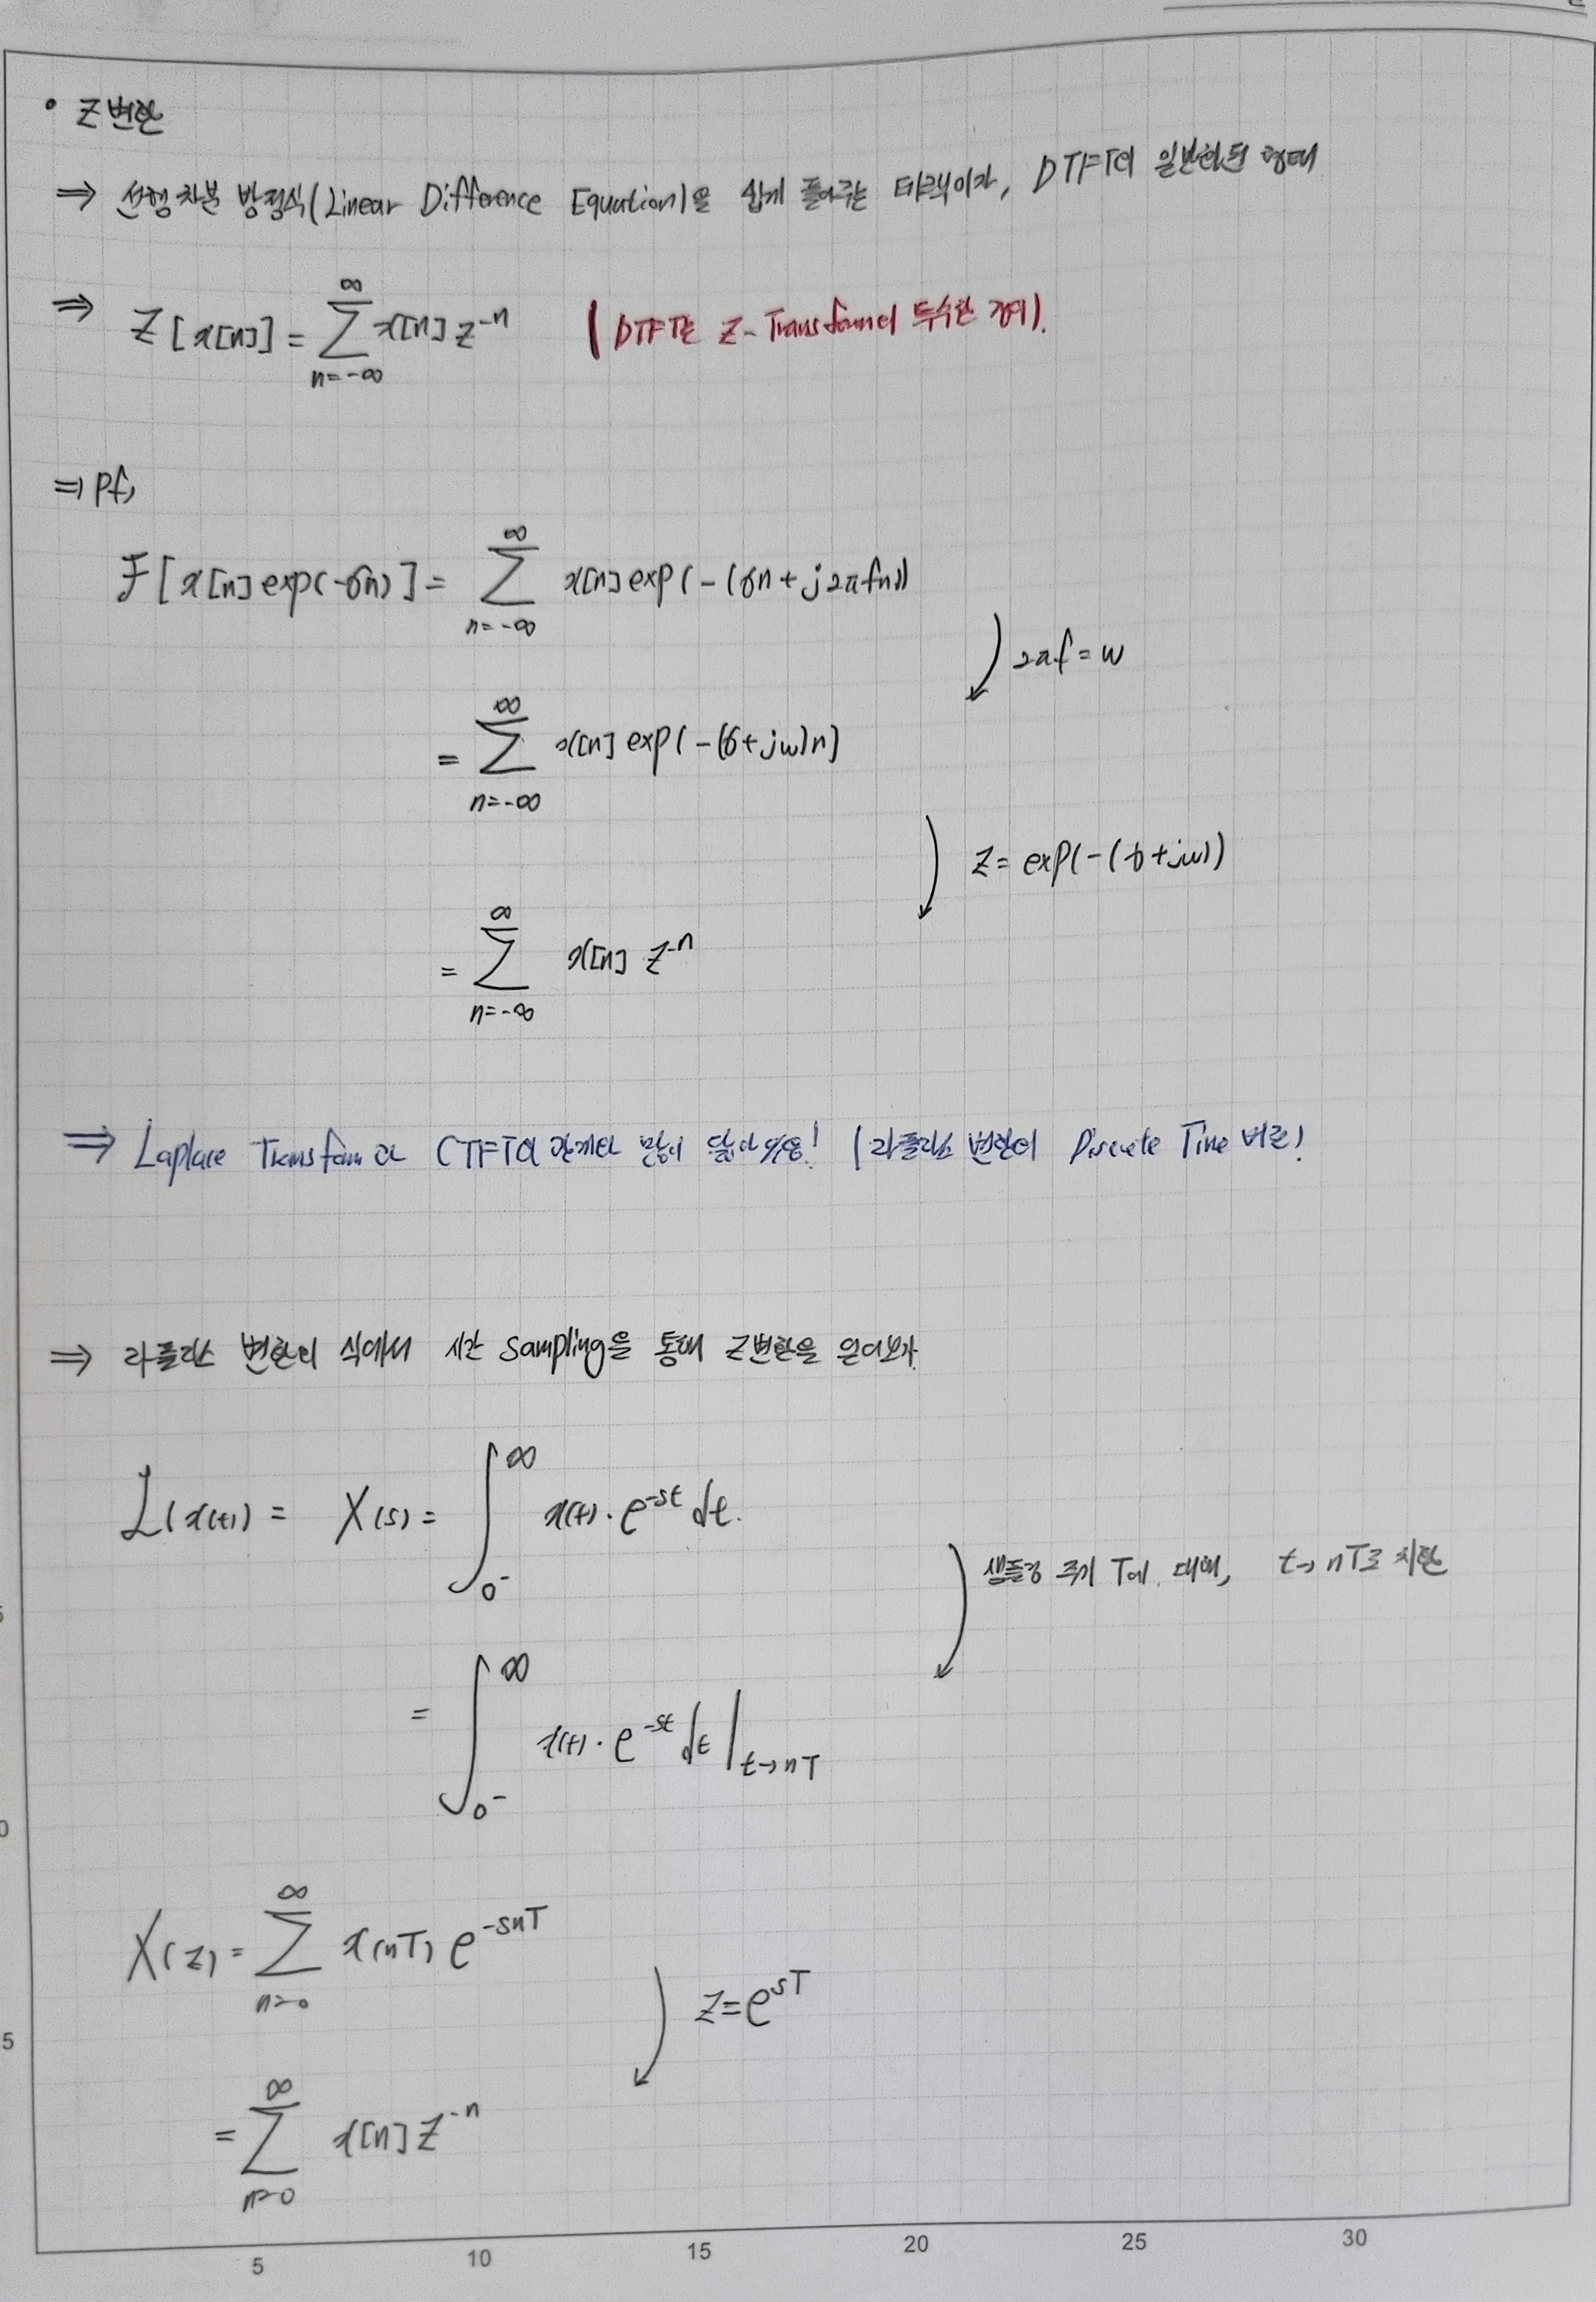 • Z변환
⇒ 선형 차분 방정식(Linear Difference Equation)을 쉽게 풀어주는 테크닉이자, DTFT의 일반화된 형태
⇒ Z[x[n]] = ∑_{n=-∞}^{∞} x[n] z^{-n} (DTFT는 Z-Transform의 특수한 경우).
⇒ pf)
F[x[n] exp(-σn)] = ∑_{n=-∞}^{∞} x[n] exp(-(σn + j2πfn))
2πf = w
= ∑_{n=-∞}^{∞} x[n] exp(-(σ+jw)n)
z = exp(-(σ+jw))
= ∑_{n=-∞}^{∞} x[n] z^{-n}
⇒ Laplace Transform과 CTFT의 관계와 많이 닮아있음! (라플라스 변환의 Discrete Time 버전!
⇒ 라플라스 변환의 식에서 시간 sampling을 통해 Z변환을 얻어보자
L(x(t)) = X(s) = ∫_{0^-}^{∞} x(t)·e^{-st} dt.
샘플링 주기 T에 대해, t→nT로 치환
= ∫_{0^-}^{∞} x(t)·e^{-st} dt |_{t→nT}
X(z) = ∑_{n=0}^{∞} x(nT) e^{-snT}
z = e^{sT}
= ∑_{n=0}^{∞} x[n] z^{-n}
5 10 15 20 25 30